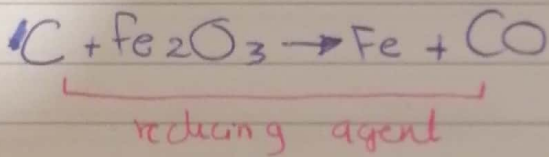 C + Fe2O3 → Fe + CO
reducing agent